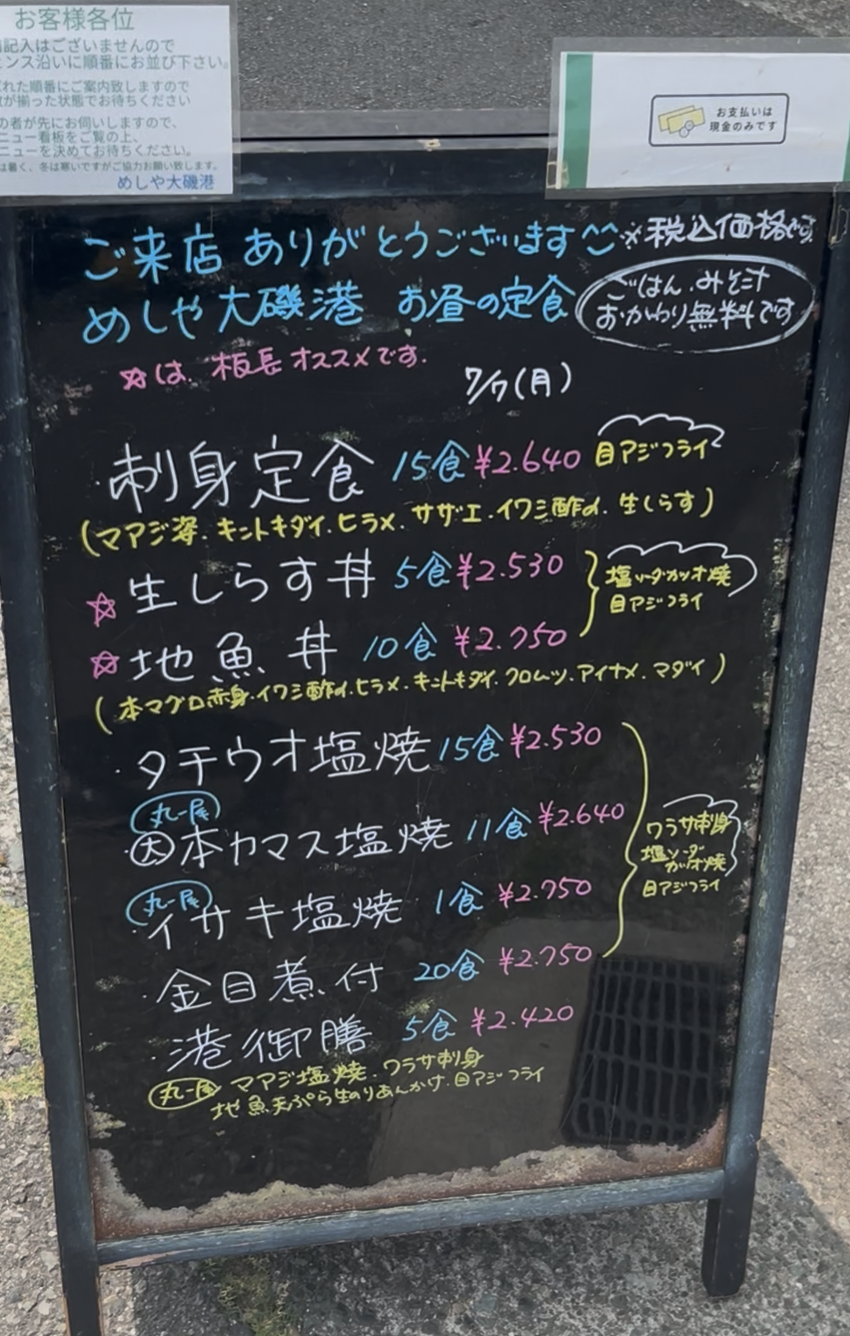 お客様各位
記入はございませんので
ェンス沿いに順番にお並び下さい。
れた順番にご案内致しますので
が揃った状態でお待ちください
の者が先にお伺いしますので、
ニュー看板をご覧の上、
ニューを決めてお待ちください。
は暑く、冬は寒いですがご協力お願い致します。
めしや大磯港
お支払いは
現金のみです
ご来店 ありがとうございます
※税込価格です
めしや大磯港 お昼の定食
ごはん、みそ汁
おかわり無料です
☆は、板長オススメです。
7/7(月)
・刺身定食 15食 ¥2.640 目アジフライ
(マアジ姿.キントキダイ.ヒラメ.サザエ.イワシ酢〆.生しらす)
☆生しらす丼 5食 ¥2.530
塩ソーダカツオ焼
目アジフライ
☆地魚丼 10食 ¥2.750
(本マグロ赤身.イワシ酢〆.ヒラメ.キントキダイ.クロムツ.アイナメ.マダイ)
・タチウオ塩焼 15食 ¥2.530
丸一屋
・因本カマス塩焼 11食 ¥2.640
ワラサ刺身
塩ソーダ
カツオ焼
目アジフライ
丸一屋
・イサキ塩焼 1食 ¥2.750
・金目煮付 20食 ¥2.750
・港御膳 5食 ¥2.420
丸一屋 マアジ塩焼.ワラサ刺身
地魚天ぷら生のりあんかけ.目アジフライ